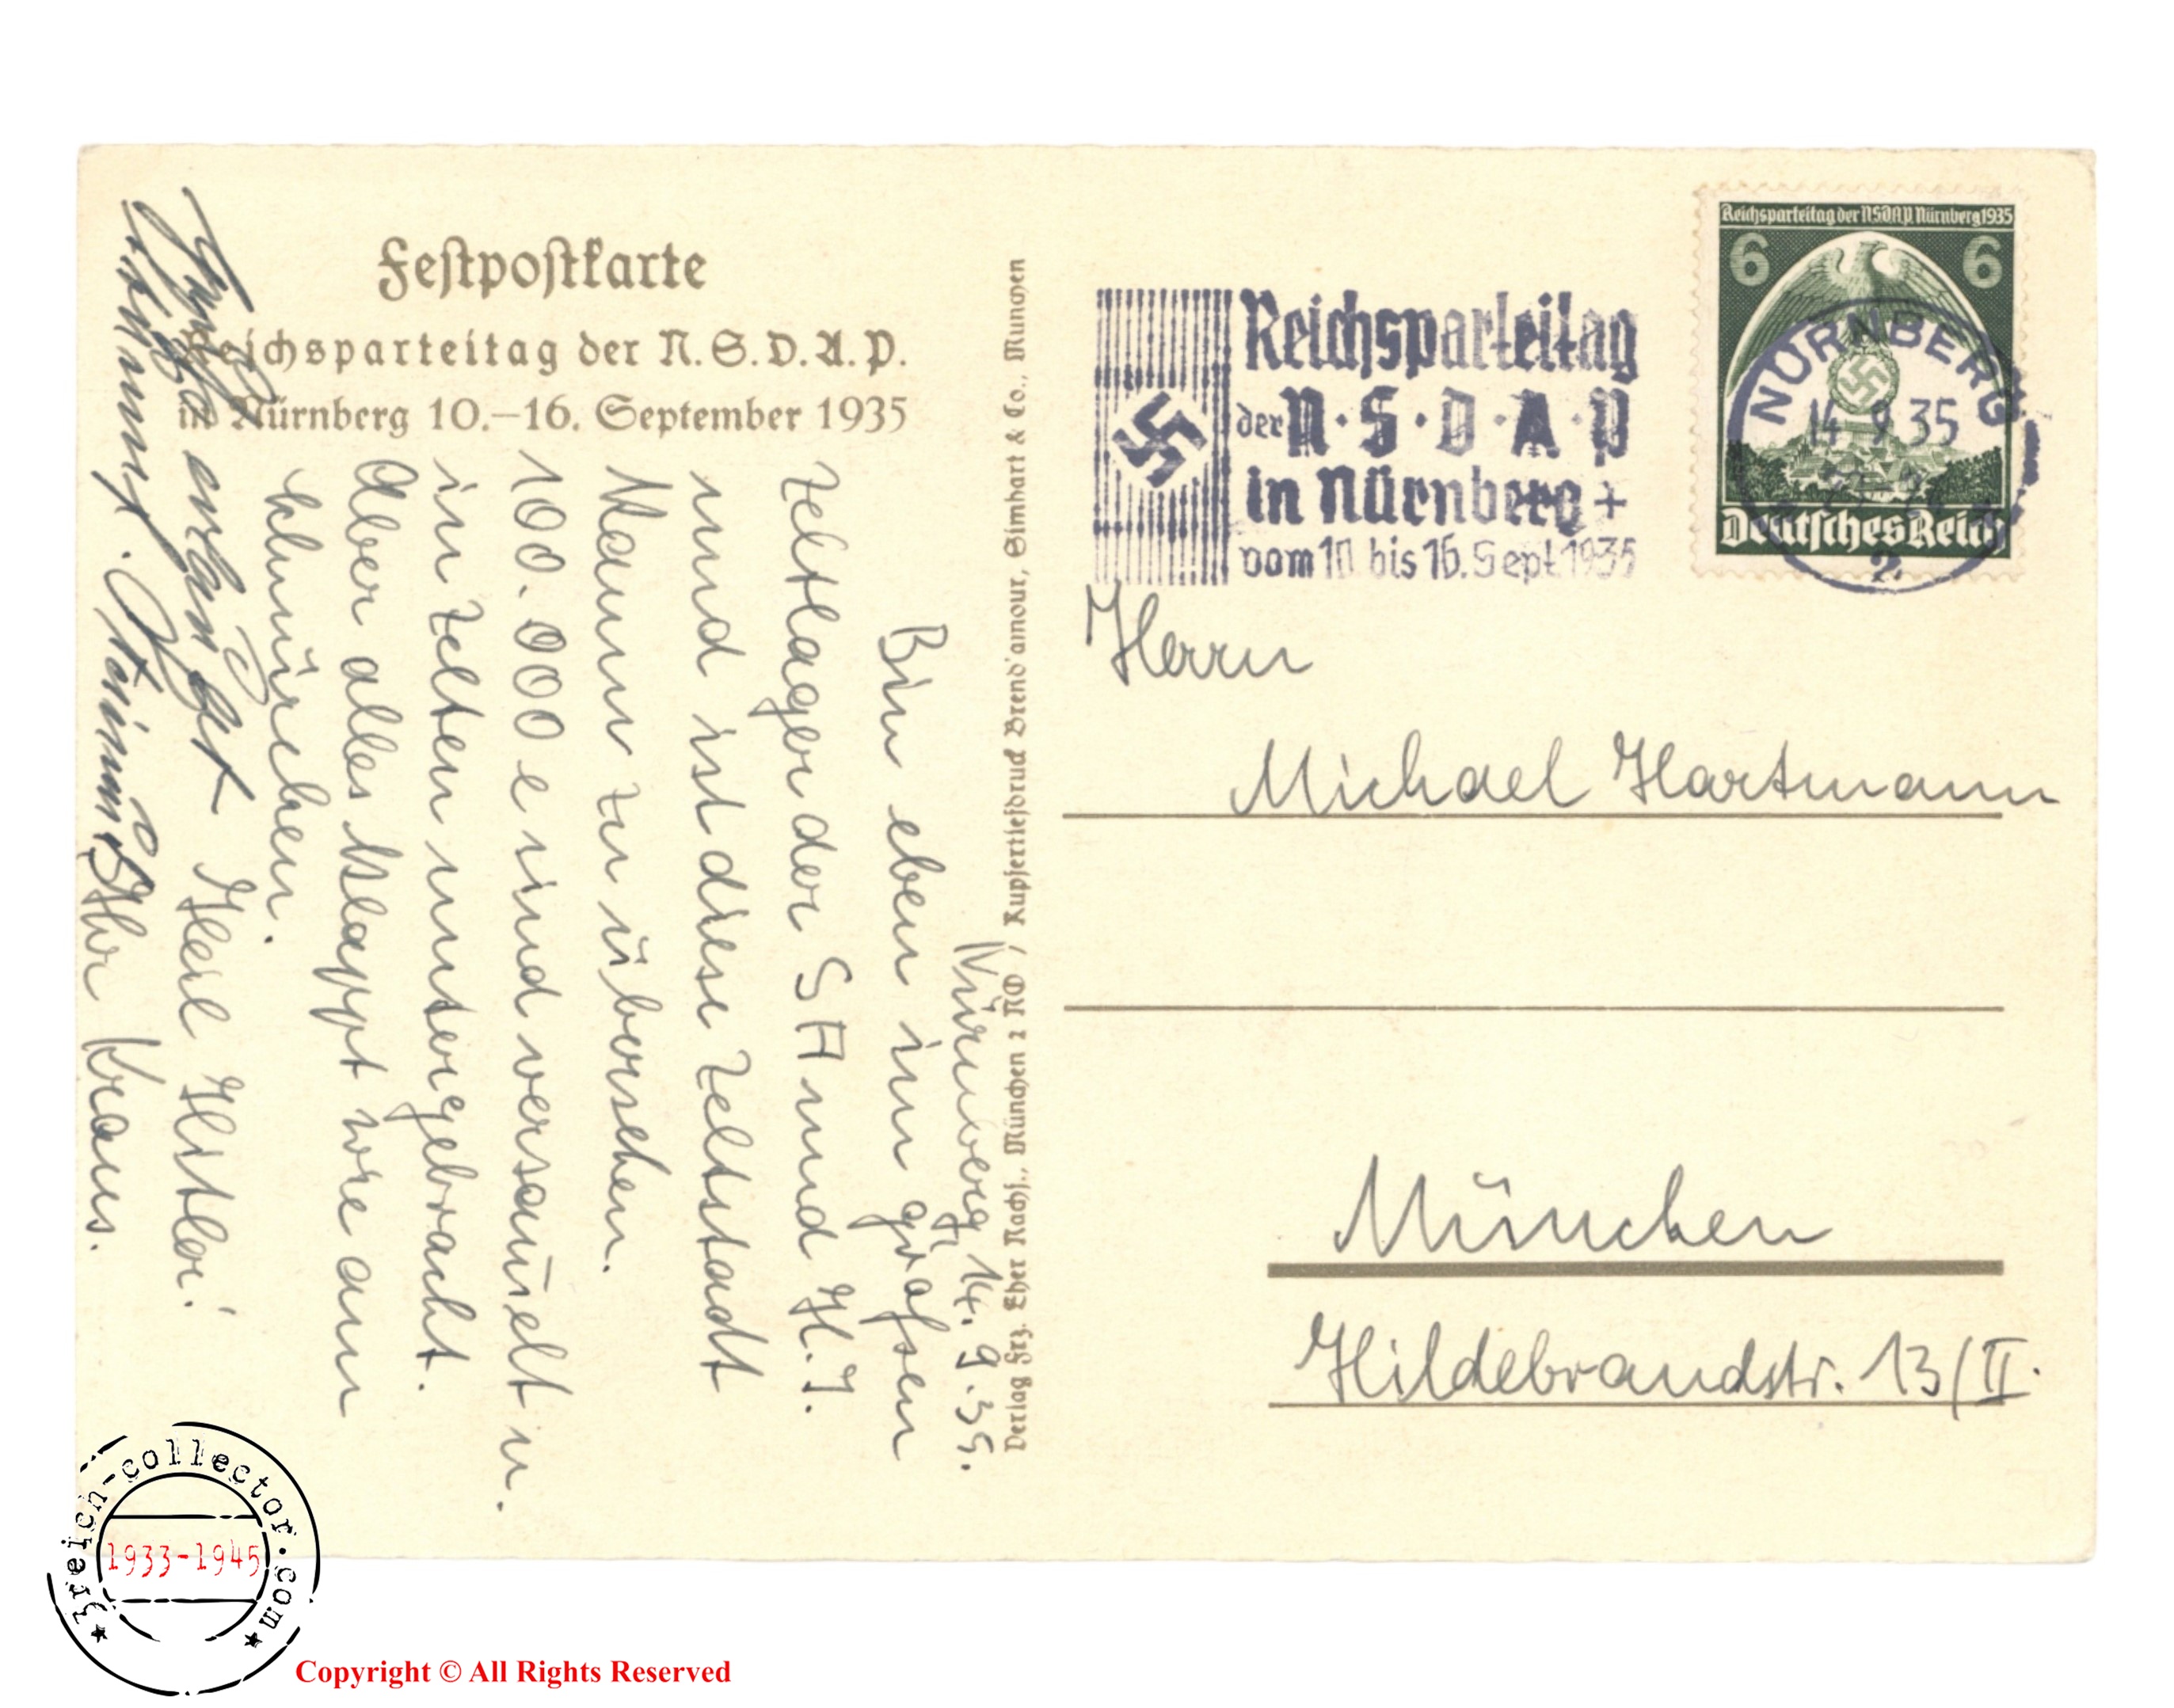 Festpostkarte
Reichsparteitag der N.S.D.A.P.
in Nürnberg 10.–16. September 1935
Nürnberg, 14. 9. 35.
Bin eben im großen
Zeltlager der SA und H.J.
und ist diese Zeltstadt
kaum zu übersehen.
100.000 e sind versam̄elt u.
in Zelten untergebracht.
Aber alles klappt wie am
Schnürchen.
Heil Hitler!
Ihr Kraus.
Verlag Frz. Eher Nachf., München 2 NO / Kupfertiefdruck Brend'amour, Simhart & Co., München
Reichsparteitag
der N·S·D·A·P
in Nürnberg +
vom 10. bis 16. Sept 1935
Reichsparteitag der NSDAP. Nürnberg 1935
6 6
Deutsches Reich
NÜRNBERG
14 9 35
2
Herrn
Michael Hartmann
München
Hildebrandstr. 13/II.
3reich-collector.com
1933-1945
Copyright © All Rights Reserved